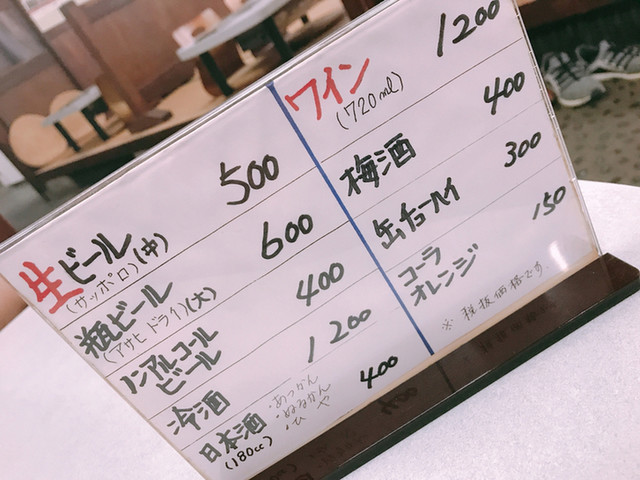 生ビール 500
(サッポロ)(中)
瓶ビール 600
(アサヒドライ)(大)
ノンアルコール
ビール 400
冷酒 1200
日本酒 400
(180cc)
・あつかん
・ぬるかん
・ひや
ワイン 1200
(720ml)
梅酒 400
缶チューハイ 300
コーラ
オレンジ 150
※税抜価格です.